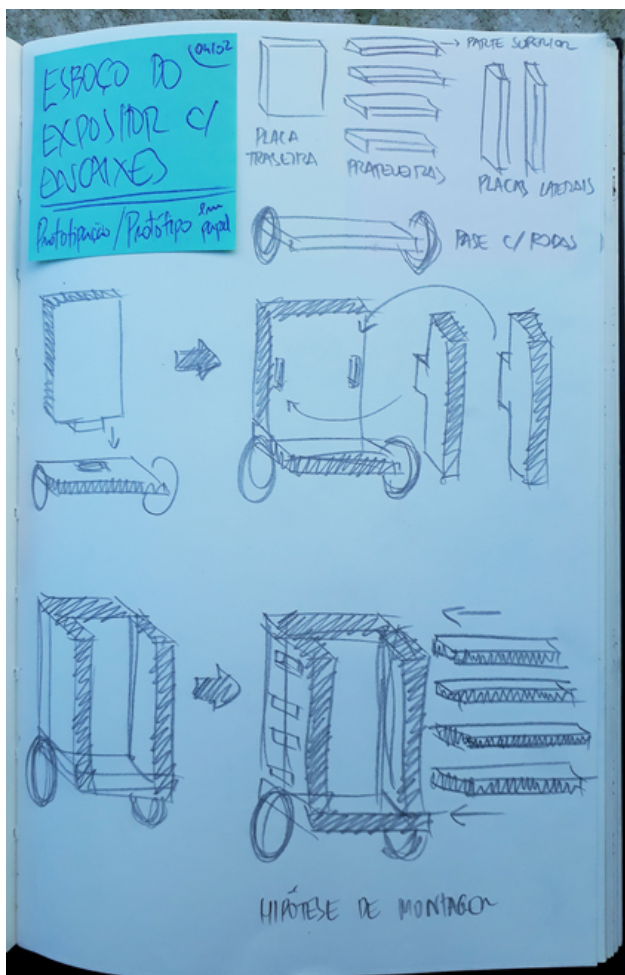 04/02
ESBOÇO DO
EXPOSITOR C/
ENCAIXES
Prototipação/Protótipo em papel
PLACA
TRASEIRA
PARTE SUPERIOR
PRATELEIRAS
PLACAS LATERAIS
BASE C/ RODAS
HIPÓTESE DE MONTAGEM